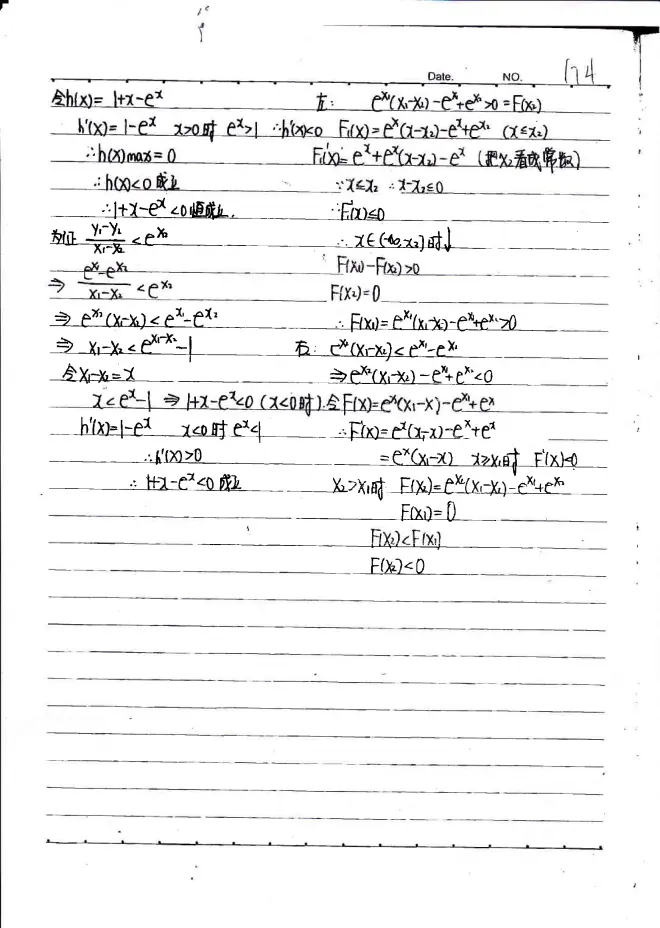 Date. NO. 174
令h(x)= 1+x-eˣ
h'(x)= 1-eˣ x>0时 eˣ>1 ∴h'(x)<0
∴h(x)max=0
∴h(x)<0 成立
∴1+x-eˣ<0恒成立.
(y₁-y₂)/(x₁-x₂) < e^x₂
⇒ (e^x₁-e^x₂)/(x₁-x₂) < e^x₂
⇒ e^x₂(x₁-x₂)<e^x₁-e^x₂
⇒ x₁-x₂<e^(x₁-x₂)-1
令x₁-x₂=x
x<eˣ-1 ⇒ 1+x-eˣ<0 (x<0时).
h'(x)=1-eˣ x<0时 eˣ<1
∴h'(x)>0
∴ 1+x-eˣ<0 成立
左: e^x₁(x₁-x₂)-e^x₁+e^x₂>0=F(x₂)
F₁(x)=eˣ(x-x₂)-eˣ+e^x₂ (x≤x₂)
F₁'(x)=eˣ+eˣ(x-x₂)-eˣ (把x₂看成常数)
∵x≤x₂ ∴x-x₂≤0
∴F'(x)≤0
∴x∈(-∞,x₂]时↓
F(x₁)-F(x₂)>0
F(x₂)=0
∴F(x₁)=e^x₁(x₁-x₂)-e^x₁+e^x₂>0
右: e^x₂(x₁-x₂)<e^x₁-e^x₂
⇒e^x₂(x₁-x₂)-e^x₁+e^x₂<0
令F(x)=eˣ(x₁-x)-e^x₁+eˣ
∴F'(x)=eˣ(x₁-x)-eˣ+eˣ
=eˣ(x₁-x) x≥x₁时 F'(x)<0
x₂>x₁时 F(x₂)=e^x₂(x₁-x₂)-e^x₁+e^x₂
F(x₁)=0
F(x₂)<F(x₁)
F(x₂)<0